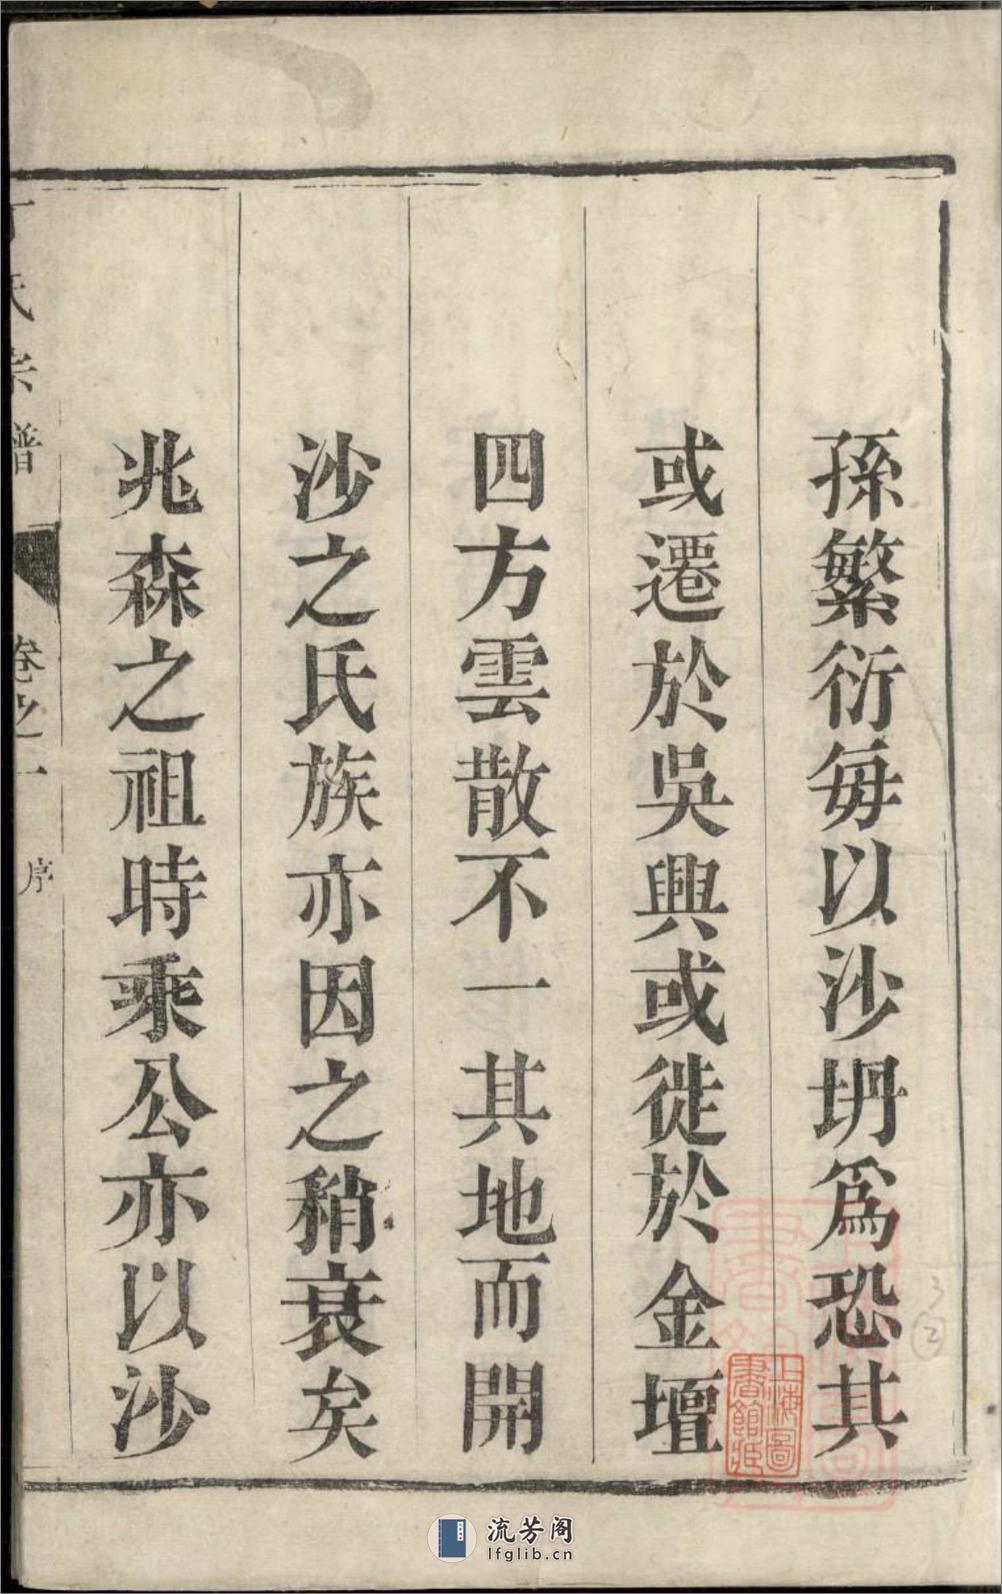 孫繁衍毎以沙坍爲恐其
或遷於吳興或徙於金壇
四方雲散不一其地而開
沙之氏族亦因之稍衰矣
兆森之祖時乘公亦以沙
氏宗譜
卷之一
序
上海圖書館藏
流芳阁
lfglib.cn